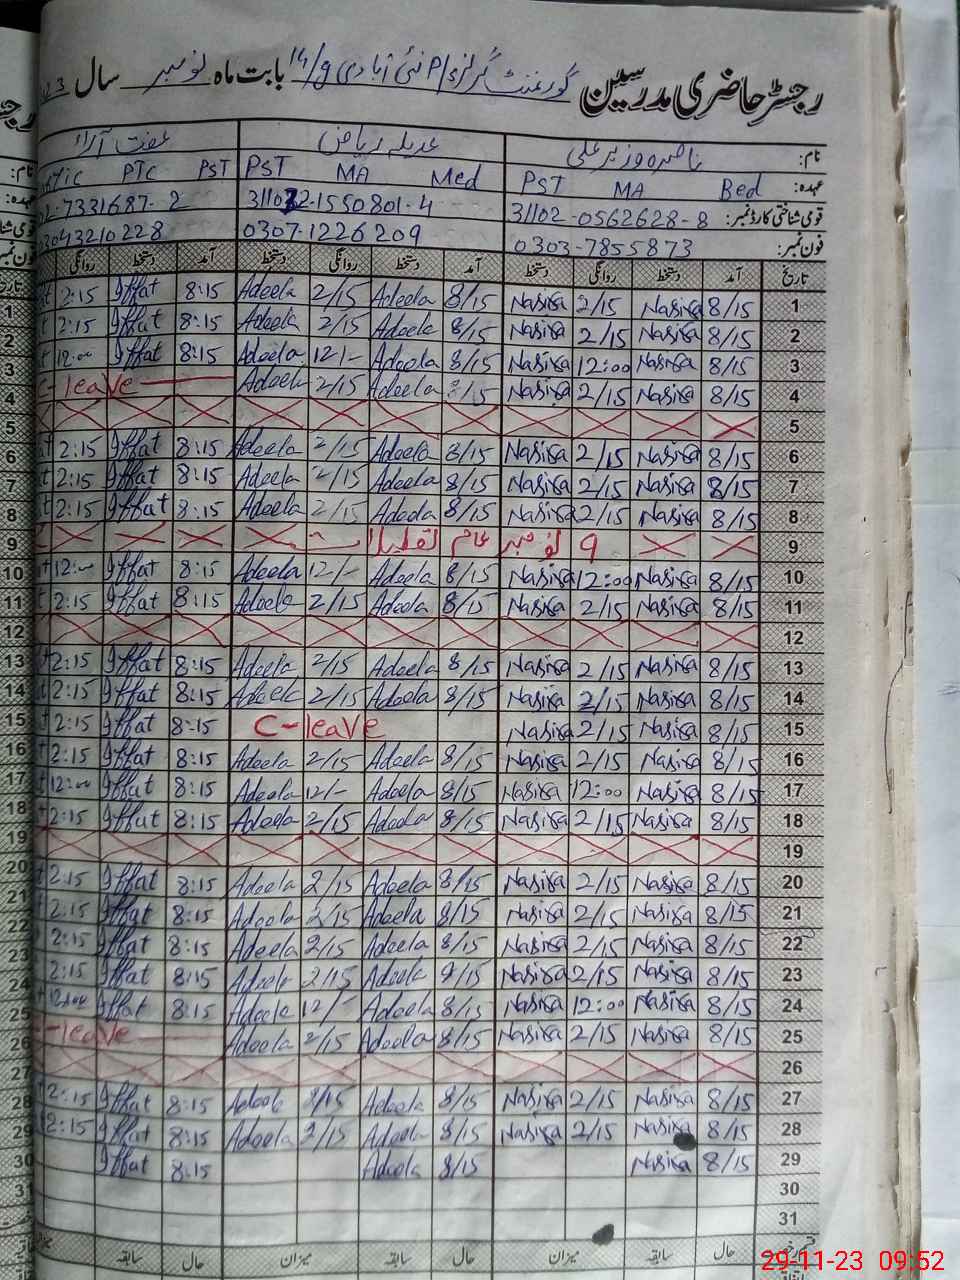 رجسٹر حاضری مدرسین گورنمنٹ گرلز P/ نئی آبادی 14/و بابت ماہ نومبر سال
نام: ناصرہ وزیر علی عدیلہ ریاض عفت آراء
عہدہ: PST MA Bed PST MA Med PTC PST
قومی شناختی کارڈ نمبر: 31102-0562628-8 31102-1550801-4 7331687-2
فون نمبر: 0303-7855873 0307-1226209 03043210228
تاریخ آمد دستخط روانگی دستخط آمد دستخط روانگی دستخط آمد دستخط روانگی
1 8/15 Nasira 2/15 Nasira 8/15 Adeela 2/15 Adeela 8:15 Iffat 2:15
2 8/15 Nasira 2/15 Nasira 8/15 Adeela 2/15 Adeela 8:15 Iffat 2:15
3 8/15 Nasira 12:00 Nasira 8/15 Adeela 12/- Adeela 8:15 Iffat 12:00
4 8/15 Nasira 2/15 Nasira 8/15 Adeela 2/15 Adeela C-leave
5
6 8/15 Nasira 2/15 Nasira 8/15 Adeela 2/15 Adeela 8:15 Iffat 2:15
7 8/15 Nasira 2/15 Nasira 8/15 Adeela 2/15 Adeela 8:15 Iffat 2:15
8 8/15 Nasira 2/15 Nasira 8/15 Adeela 2/15 Adeela 8:15 Iffat 2:15
9 9 نومبر عام تعطیلات
10 8/15 Nasira 12:00 Nasira 8/15 Adeela 12/- Adeela 8:15 Iffat 12:00
11 8/15 Nasira 2/15 Nasira 8/15 Adeela 2/15 Adeela 8:15 Iffat 2:15
12
13 8/15 Nasira 2/15 Nasira 8/15 Adeela 2/15 Adeela 8:15 Iffat 2:15
14 8/15 Nasira 2/15 Nasira 8/15 Adeela 2/15 Adeela 8:15 Iffat 2:15
15 8/15 Nasira 2/15 Nasira C-leave 8:15 Iffat 2:15
16 8/15 Nasira 2/15 Nasira 8/15 Adeela 2/15 Adeela 8:15 Iffat 2:15
17 8/15 Nasira 12:00 Nasira 8/15 Adeela 12/- Adeela 8:15 Iffat 12:00
18 8/15 Nasira 2/15 Nasira 8/15 Adeela 2/15 Adeela 8:15 Iffat 2:15
19
20 8/15 Nasira 2/15 Nasira 8/15 Adeela 2/15 Adeela 8:15 Iffat 2:15
21 8/15 Nasira 2/15 Nasira 8/15 Adeela 2/15 Adeela 8:15 Iffat 2:15
22 8/15 Nasira 2/15 Nasira 8/15 Adeela 2/15 Adeela 8:15 Iffat 2:15
23 8/15 Nasira 2/15 Nasira 8/15 Adeela 2/15 Adeela 8:15 Iffat 2:15
24 8/15 Nasira 12:00 Nasira 8/15 Adeela 12/- Adeela 8:15 Iffat 12:00
25 8/15 Nasira 2/15 Nasira 8/15 Adeela 2/15 Adeela C-leave
26
27 8/15 Nasira 2/15 Nasira 8/15 Adeela 2/15 Adeela 8:15 Iffat 2:15
28 8/15 Nasira 2/15 Nasira 8/15 Adeela 2/15 Adeela 8:15 Iffat 2:15
29 8/15 Nasira 8/15 Adeela 8:15 Iffat
30
31
حال سابقہ میزان حال سابقہ میزان حال سابقہ
29-11-23 09:52